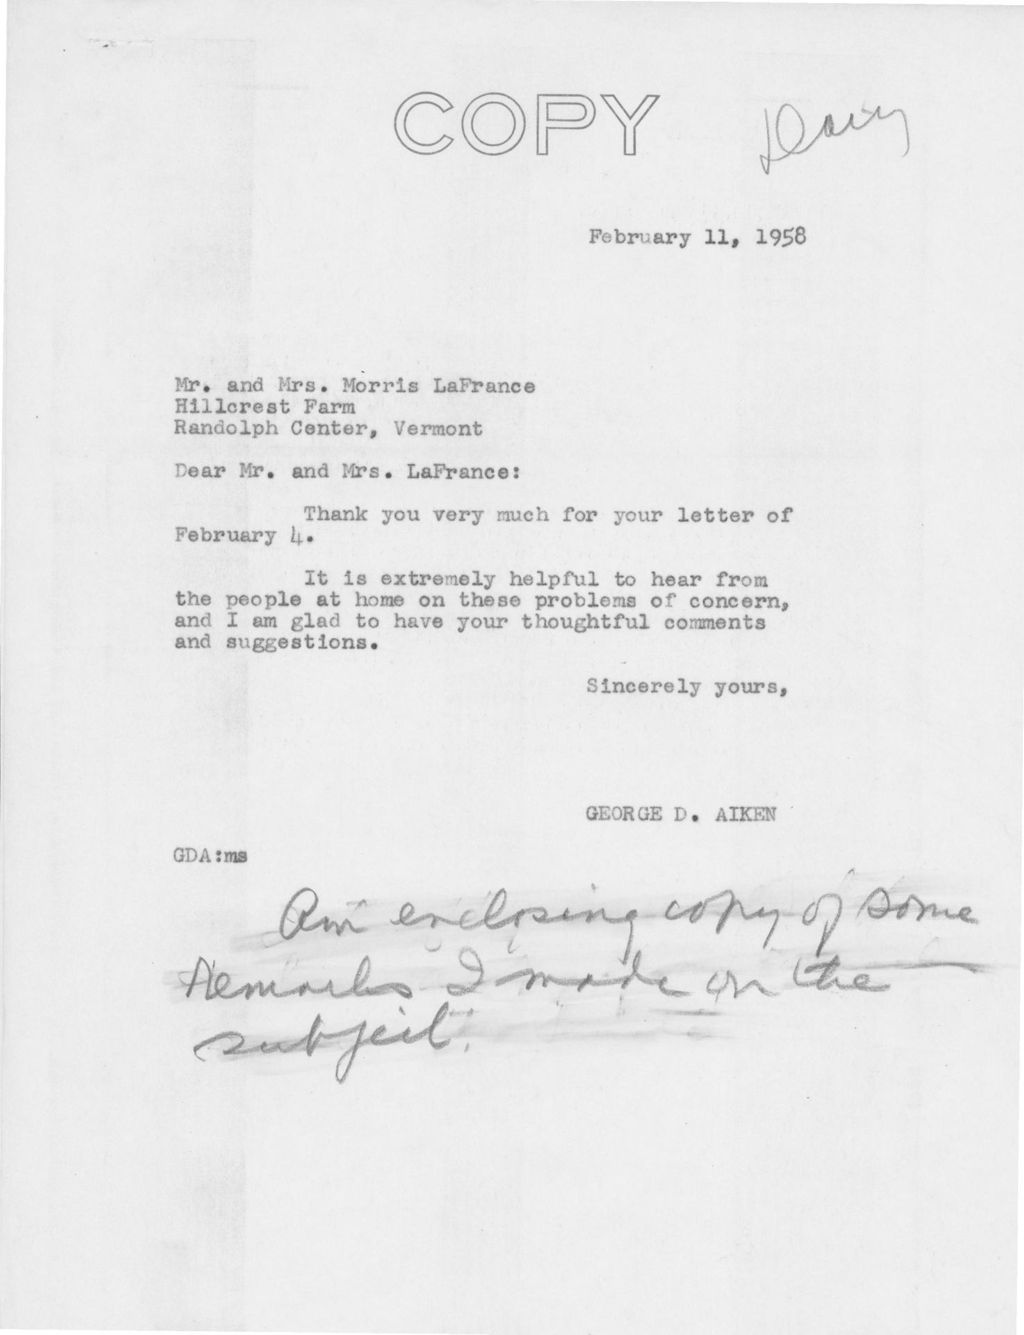 COPY
Dairy
February 11, 1958
Mr. and Mrs. Morris LaFrance
Hillcrest Farm
Randolph Center, Vermont
Dear Mr. and Mrs. LaFrance:
Thank you very much for your letter of
February 4.
It is extremely helpful to hear from
the people at home on these problems of concern,
and I am glad to have your thoughtful comments
and suggestions.
Sincerely yours,
GEORGE D. AIKEN
GDA:ms
Am enclosing copy of some
remarks I made on the
subject.